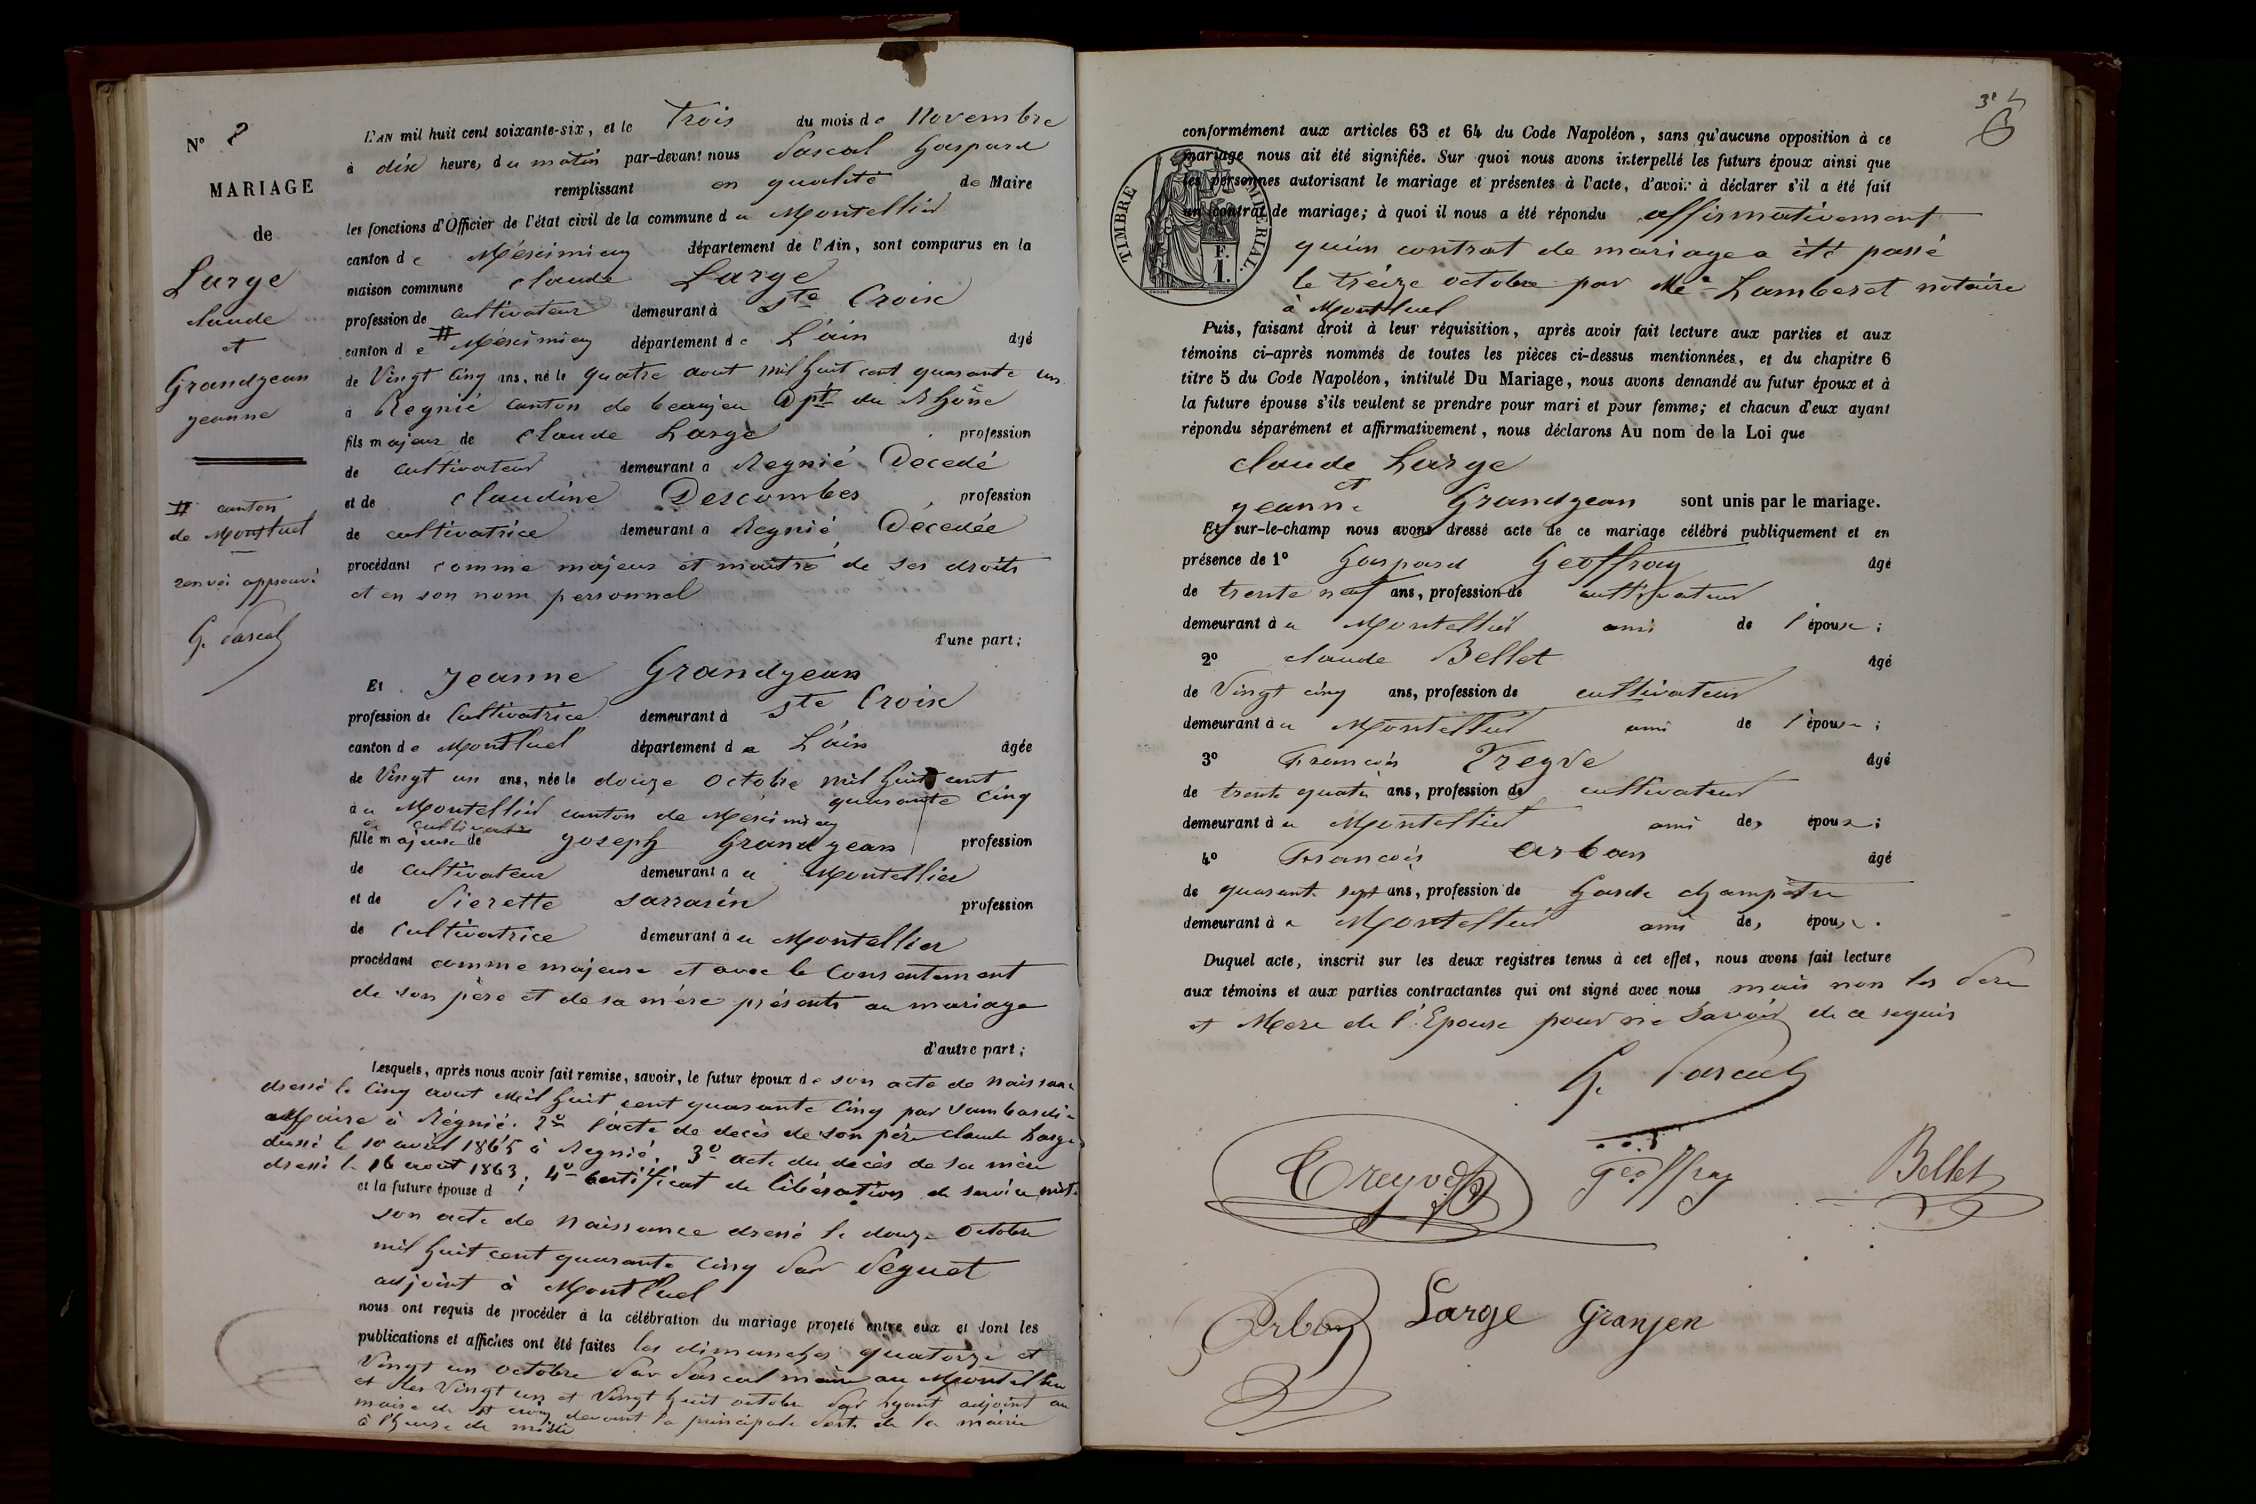 N° 2
MARIAGE
de
Large
claude
et
Grandjean
jeanne
# canton
de Montluel
renvoi approuvé
G. Pascal
L'AN mil huit cent soixante-six, et le Trois du mois de Novembre
à dix heure, du matin par-devant nous Pascal Gaspard
remplissant en qualité de Maire
les fonctions d'Officier de l'état civil de la commune du Montellier
canton de Méximieux département de l'Ain, sont comparus en la
maison commune claude Large
profession de cultivateur demeurant à Ste Croix
canton de # Méximieux département de L'ain âgé
de Vingt Cinq ans, né le quatre aout mil huit cent quarante un
à Regnié canton de beaujeu Dpt du Rhône
fils majeur de claude Large profession
de cultivateur demeurant à Regnié Décedé
et de claudine Descombes profession
de cultivatrice demeurant à Regnié Décedée
procédant comme majeur et maître de ses droits
et en son nom personnel
d'une part;
Et Jeanne Grandjean
profession de Cultivatrice demeurant à Ste Croix
canton de Montluel département de L'ain âgée
de Vingt un ans, née le douze Octobre mil huit cent
quarante Cinq
au Montellier canton de Méximieux
fille majeure de joseph Grandjean profession
de cultivateur demeurant au Montellier
et de Pierette Sarrasin profession
de Cultivatrice demeurant au Montellier
procédant comme majeure et avec le Consentement
de son père et de sa mère présents au mariage
d'autre part;
Lesquels, après nous avoir fait remise, savoir, le futur époux de son acte de naissance
dressé le Cinq aout Mil huit cent quarante Cinq par
Maire à Régnié. 2° l'acte de decès de son père claude Large
dressé le 10 avril 1865 à Regnié, 3° acte du decès de sa mère
dressé le 16 aout 1863, 4° Certificat de libération de service milit.
et la future épouse d
son acte de naissance dressé le douze Octobre
mil huit cent quarante Cinq Par Péguet
adjoint à Montluel
nous ont requis de procéder à la célébration du mariage projeté entre eux et dont les
publications et affiches ont été faites les dimanches quatorze et
Vingt un octobre Par Pascal maire au Montellier
et Les Vingt un et Vingt huit octobre Par adjoint au
maire de St Croix devant la principale Porte de la mairie
à l'heure de midi
conformément aux articles 63 et 64 du Code Napoléon, sans qu'aucune opposition à ce
mariage nous ait été signifiée. Sur quoi nous avons interpellé les futurs époux ainsi que
les personnes autorisant le mariage et présentes à l'acte, d'avoir à déclarer s'il a été fait
un contrat de mariage; à quoi il nous a été répondu affirmativement
qu'un contrat de mariage a été passé
le treize octobre par Me Lamberet notaire
à Montluel
TIMBRE IMPERIAL.
F.
1.
Puis, faisant droit à leur réquisition, après avoir fait lecture aux parties et aux
témoins ci-après nommés de toutes les pièces ci-dessus mentionnées, et du chapitre 6
titre 5 du Code Napoléon, intitulé Du Mariage, nous avons demandé au futur époux et à
la future épouse s'ils veulent se prendre pour mari et pour femme; et chacun d'eux ayant
répondu séparément et affirmativement, nous déclarons Au nom de la Loi que
claude Large
et
jeanne Grandjean sont unis par le mariage.
Et sur-le-champ nous avons dressé acte de ce mariage célébré publiquement et en
présence de 1° Gaspard Geoffray âgé
de trente neuf ans, profession de cultivateur
demeurant à u Montellier ami de l'épouse;
2° claude Bellet âgé
de Vingt cinq ans, profession de cultivateur
demeurant à u Montellier ami de l'épouse;
3° Francois Treyve âgé
de trente quatre ans, profession de cultivateur
demeurant à u Montellier ami des époux;
4° Francois Arban âgé
de quarante sept ans, profession de Garde champêtre
demeurant à u Montellier ami des époux.
Duquel acte, inscrit sur les deux registres tenus à cet effet, nous avons fait lecture
aux témoins et aux parties contractantes qui ont signé avec nous mais non les Pere
et Mere de l'Epouse pour ne Savoir de ce requis
G. Pascal
Treyve
Geoffray
Bellet
Arban
Large
Granjen